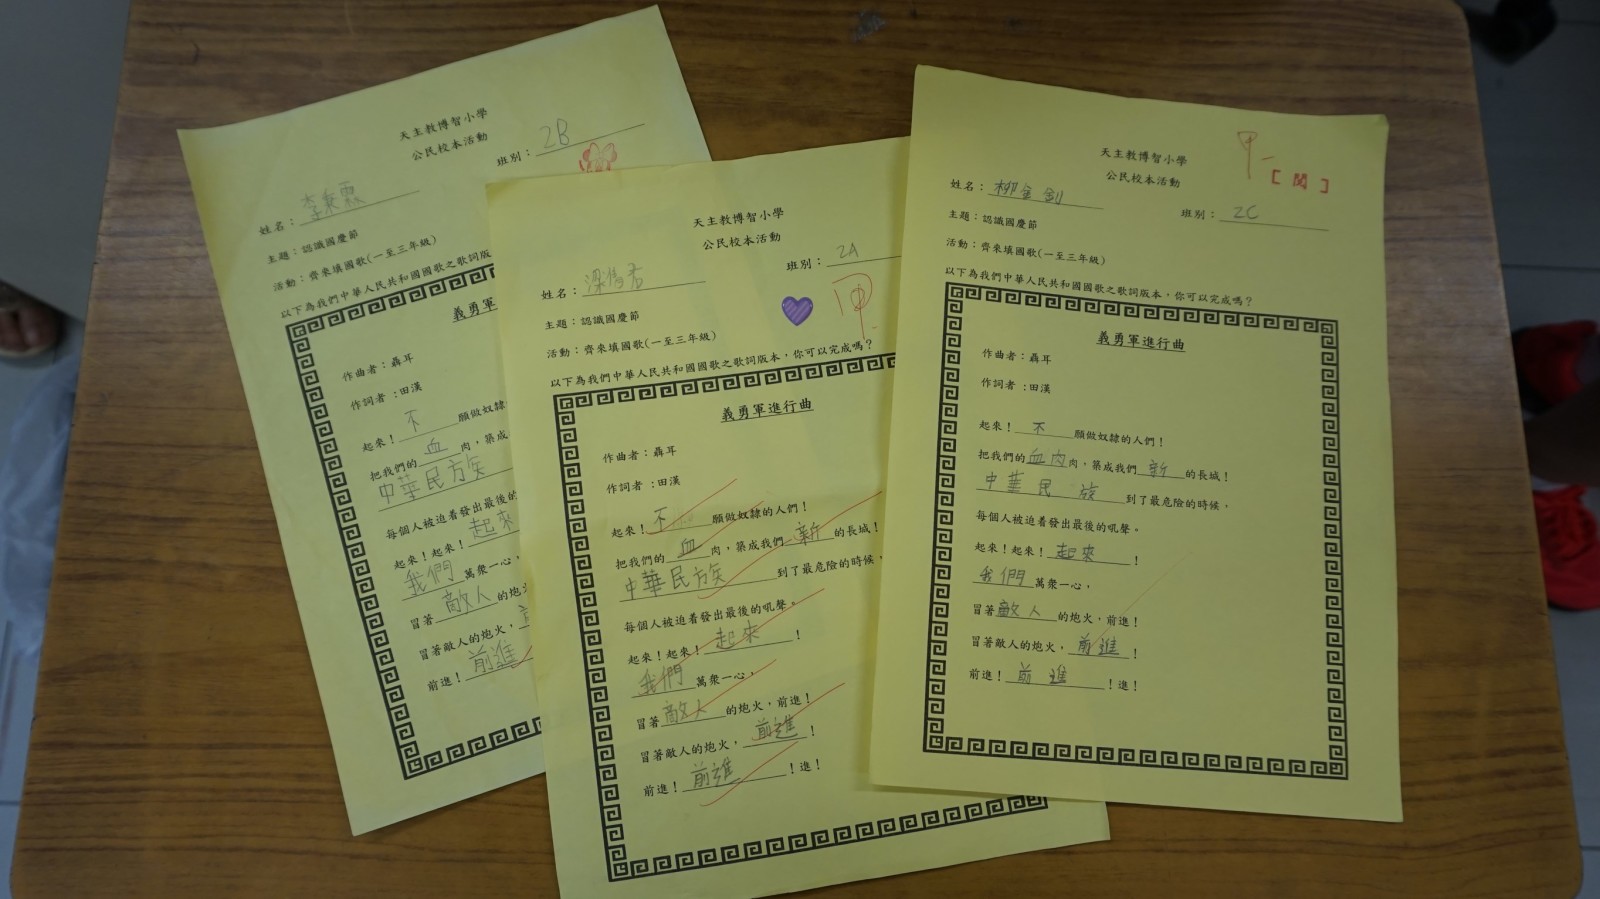 天主教博智小學
公民校本活動
班別：2B
姓名：李秉霖
主題：認識國慶節
活動：齊來填國歌(一至三年級)
以下為我們中華人民共和國國歌之歌詞版
義勇軍
作曲者：聶耳
作詞者：田漢
起來！不願做奴隸
把我們的血肉，築成
中華民族
每個人被迫着發出最後的
起來！起來！起來
我們萬衆一心，
冒著敵人的炮
冒著敵人的炮火，
前進！前進
天主教博智小學
公民校本活動
班別：2A
姓名：梁雋若
主題：認識國慶節
活動：齊來填國歌(一至三年級)
以下為我們中華人民共和國國歌之歌詞版本，你可以完成嗎？
義勇軍進行曲
作曲者：聶耳
作詞者：田漢
起來！不願做奴隸的人們！
把我們的血肉，築成我們新的長城！
中華民族到了最危險的時候，
每個人被迫着發出最後的吼聲。
起來！起來！起來！
我們萬衆一心，
冒著敵人的炮火，前進！
冒著敵人的炮火，前進！
前進！前進！進！
甲-
[閱]
天主教博智小學
公民校本活動
姓名：柳金劍 班別：2C
主題：認識國慶節
活動：齊來填國歌(一至三年級)
以下為我們中華人民共和國國歌之歌詞版本，你可以完成嗎？
義勇軍進行曲
作曲者：聶耳
作詞者：田漢
起來！不願做奴隸的人們！
把我們的血肉肉，築成我們新的長城！
中華民族到了最危險的時候，
每個人被迫着發出最後的吼聲。
起來！起來！起來！
我們萬衆一心，
冒著敵人的炮火，前進！
冒著敵人的炮火，前進！
前進！前進！進！